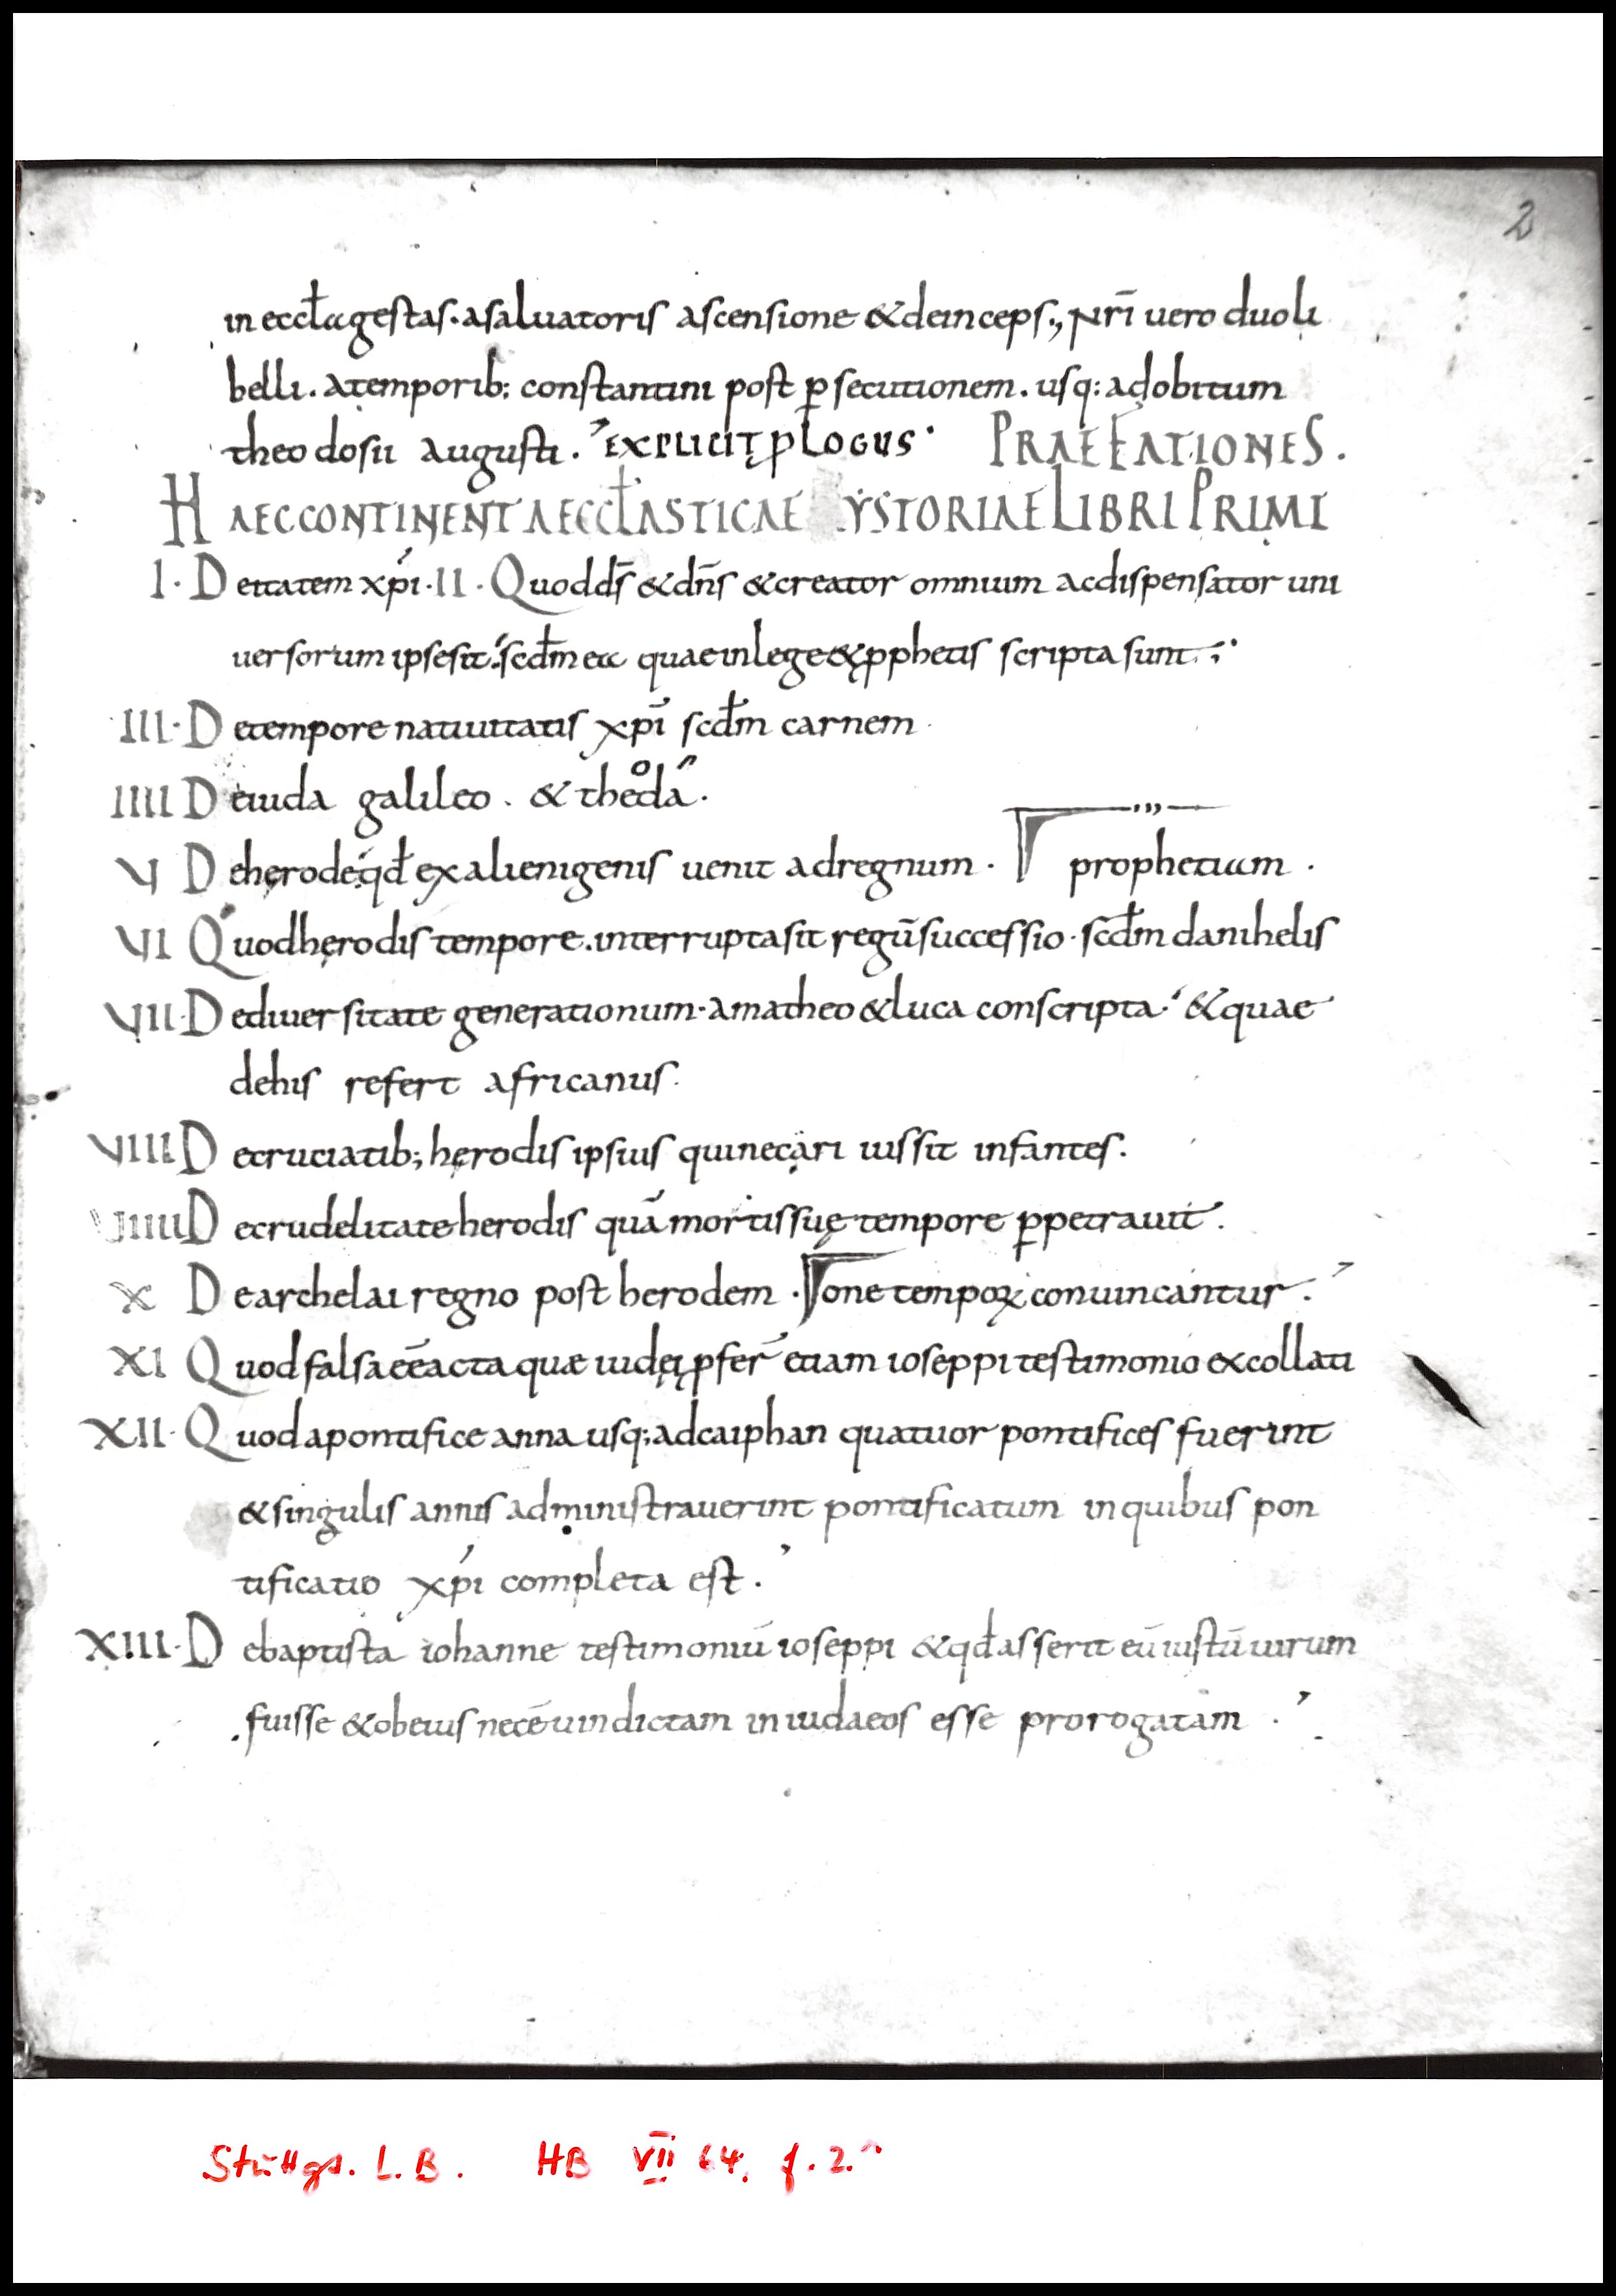 2
in eccƚa gestas. a saluatoris ascensione & deinceps., Nr̄i uero duo li
belli. a temporib; constantini post ꝑsecutionem. usq: ad obitum
theodosii augusti. EXPLICIT PLOGUS PRAEFATIONES.
HAEC CONTINENT AECCƚASTICAE YSTORIAE LIBRI PRIMI
I. Deitatem xp̄i. II. Quod d̄s & dn̄s & creator omnium ac dispensator uni
uersorum ipse sit. scdm̄ ea quae in lege & pphetis scripta sunt;
III. De tempore natiuitatis xp̄i scdm̄ carnem.
IIII De iuda galileo. & theoda.
V De herode qđ ex alienigenis uenit ad regnum. prophetiam.
VI Quod herodis tempore. interrupta sit regū successio. scdm̄ danihelis
VII. De diuersitate generationum. a matheo & luca conscripta. & quae
de his refert africanus.
VIII De cruciatib; herodis ipsius qui necari iussit infantes.
VIIII De crudelitate herodis quā mortis suę tempore ꝑpetrauit.
X De archelai regno post herodem. one tempoꝝ conuincantur.
XI Quod falsa eē acta quae iudęi ꝓfer̄ etiam ioseppi testimonio ex collati
XII. Quod a pontifice anna usq; ad caiphan quatuor pontifices fuerint
& singulis annis administrauerint pontificatum in quibus pon
tificatio xp̄i completa est.
XIII. De baptista iohanne testimoniū ioseppi & qđ asserit eū iustū uirum
fuisse & ob eius necē uindictam in iudaeos esse prorogatam.
Stuttgt. L.B. HB VII 64. f. 2.r